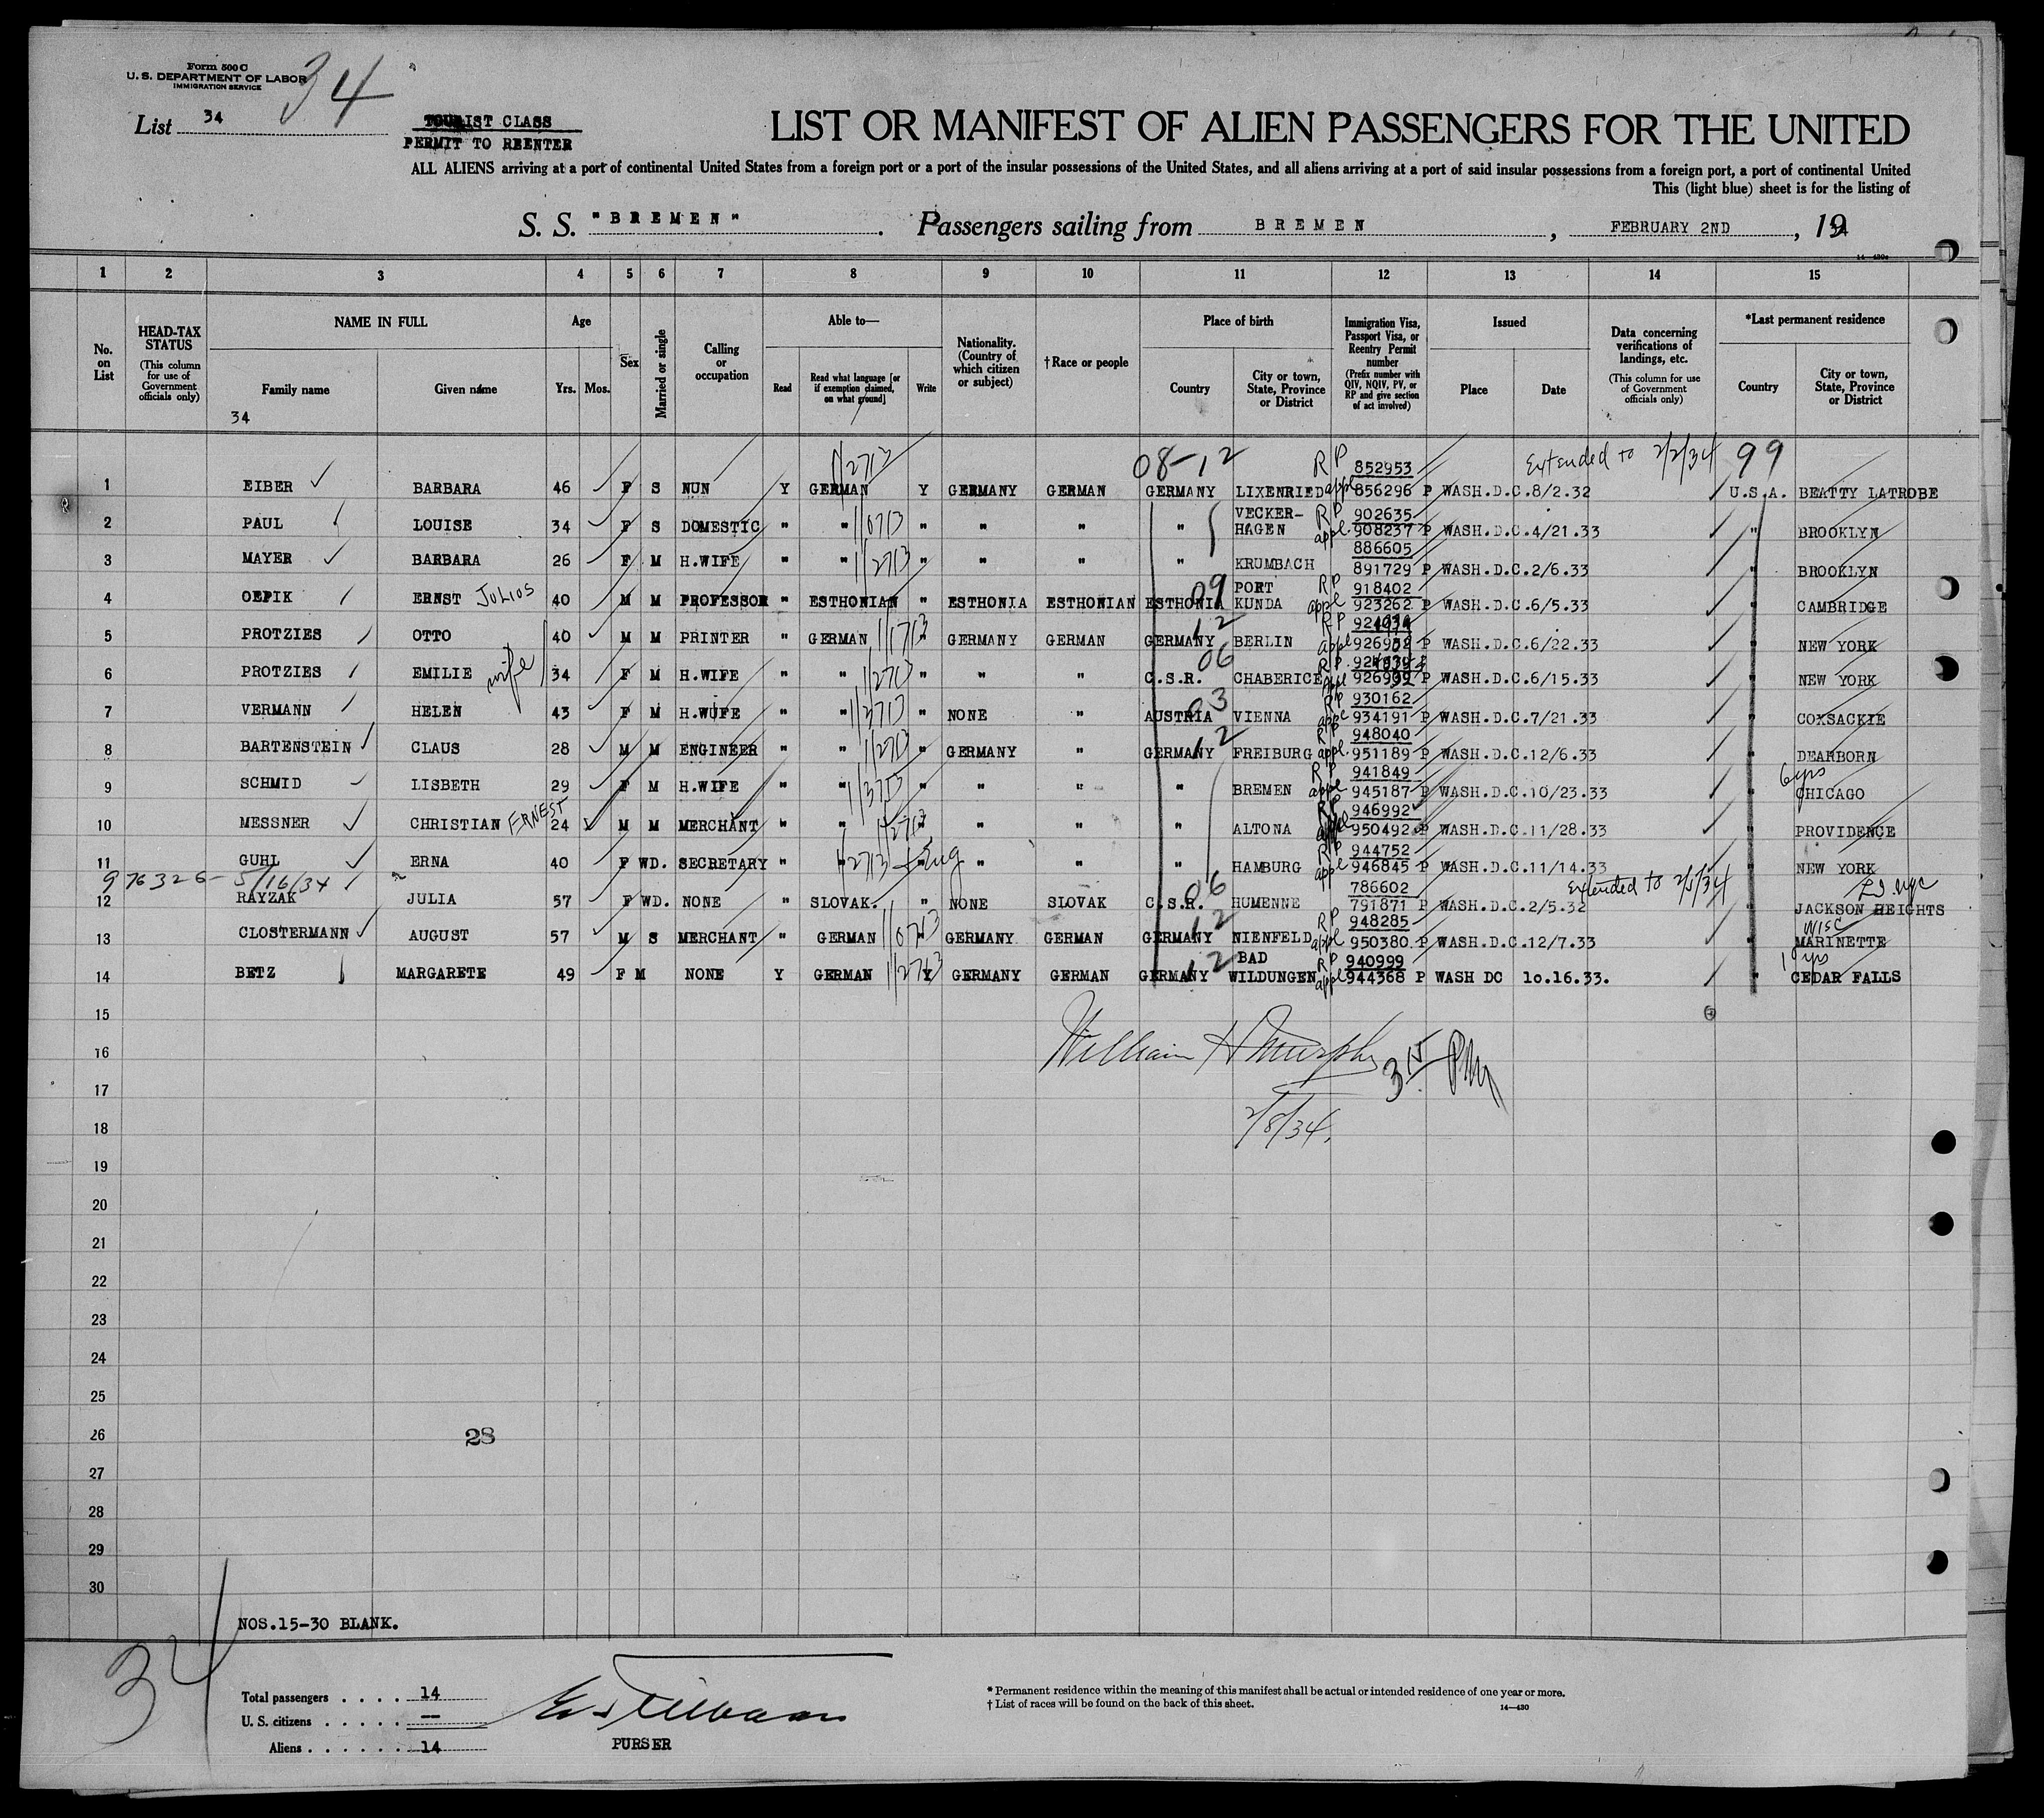 Form 500 C
U. S. DEPARTMENT OF LABOR
IMMIGRATION SERVICE
34
List 34
TOURIST CLASS
PERMIT TO REENTER
LIST OR MANIFEST OF ALIEN PASSENGERS FOR THE UNITED
ALL ALIENS arriving at a port of continental United States from a foreign port or a port of the insular possessions of the United States, and all aliens arriving at a port of said insular possessions from a foreign port, a port of continental United
This (light blue) sheet is for the listing of
S. S. "BREMEN". Passengers sailing from BREMEN, FEBRUARY 2ND, 1934
14—430a
1 2 3 4 5 6 7 8 9 10 11 12 13 14 15
No. on List
HEAD-TAX STATUS (This column for use of Government officials only)
NAME IN FULL Family name Given name
Age Yrs. Mos.
Sex
Married or single
Calling or occupation
Able to— Read Read what language [or if exemption claimed, on what ground] Write
Nationality. (Country of which citizen or subject)
† Race or people
Place of birth Country City or town, State, Province or District
Immigration Visa, Passport Visa, or Reentry Permit number (Prefix number with QIV, NQIV, PV, or RP and give section of act involved)
Issued Place Date
Data concerning verifications of landings, etc. (This column for use of Government officials only)
*Last permanent residence Country City or town, State, Province or District
34
11/2713 08-12 RP 852953 Extended to 2/2/34 99
1 EIBER BARBARA 46 F S NUN Y GERMAN Y GERMANY GERMAN GERMANY LIXENRIED appl 856296 P WASH.D.C.8/2.32 U.S.A. BEATTY LATROBE
VECKER- RP 902635
2 PAUL LOUISE 34 F S DOMESTIC " " " " " " HAGEN appl. 908237 P WASH.D.C.4/21.33 " BROOKLYN
886605
3 MAYER BARBARA 26 F M H.WIFE " " " " " " KRUMBACH 891729 P WASH.D.C.2/6.33 " BROOKLYN
09 PORT RP 918402
4 OEPIK ERNST JULIOS 40 M M PROFESSOR " ESTHONIAN " ESTHONIA ESTHONIAN ESTHONIA KUNDA appl 923262 P WASH.D.C.6/5.33 " CAMBRIDGE
12 RP
5 PROTZIES OTTO 40 M M PRINTER " GERMAN " GERMANY GERMAN GERMANY BERLIN appl P WASH.D.C.6/22.33 " NEW YORK
06 RP
6 PROTZIES EMILIE wife 34 F M H.WIFE " " " " " C.S.R. CHABERICE P WASH.D.C.6/15.33 " NEW YORK
03 RP 930162
7 VERMANN HELEN 43 F M H.WUFE " " " NONE " AUSTRIA VIENNA appl 934191 P WASH.D.C.7/21.33 " COXSACKIE
12 RP 948040
8 BARTENSTEIN CLAUS 28 M M ENGINEER " " " GERMANY " GERMANY FREIBURG appl. 951189 P WASH.D.C.12/6.33 " DEARBORN
RP 941849 6 yrs
9 SCHMID LISBETH 29 F M H.WIFE " " " " " " BREMEN appl 945187 P WASH.D.C.10/23.33 " CHICAGO
RP 946992
10 MESSNER CHRISTIAN ERNEST 24 M M MERCHANT " " " " " " ALTONA 950492 P WASH.D.C.11/28.33 " PROVIDENCE
RP 944752
11 GUHL ERNA 40 F WD. SECRETARY " " + Eng " " " " HAMBURG appl 946845 P WASH.D.C.11/14.33 " NEW YORK
976326- 5/16/34 06 786602 Extended to 2/5/34
12 RAYZAK JULIA 57 F WD. NONE " SLOVAK. " NONE SLOVAK C.S.R. HUMENNE 791871 P WASH.D.C.2/5.32 JACKSON HEIGHTS
12 RP 948285 Wisc
13 CLOSTERMANN AUGUST 57 M S MERCHANT " GERMAN " GERMANY GERMAN GERMANY NIENFELD appl 950380 P WASH.D.C.12/7.33 " MARINETTE
12 BAD RP 940999
14 BETZ MARGARETE 49 F M NONE Y GERMAN Y GERMANY GERMAN GERMANY WILDUNGEN appl 944368 P WASH DC 10.16.33. " CEDAR FALLS
15
16 William H Murphy 3 15 PM
17
18 2/8/34.
19
20
21
22
23
24
25
26 28
27
28
29
30
NOS.15-30 BLANK.
34
Total passengers . . . . 14
U. S. citizens . . . . . —
Aliens . . . . . . 14
PURSER
* Permanent residence within the meaning of this manifest shall be actual or intended residence of one year or more.
† List of races will be found on the back of this sheet.
14—430